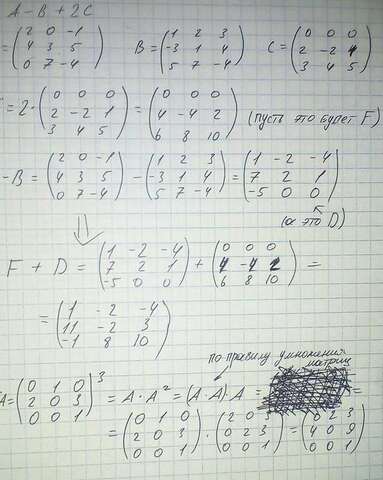 A - B + 2C
= (2 0 -1 / 4 3 5 / 0 7 -4) B = (1 2 3 / -3 1 4 / 5 7 -4) C = (0 0 0 / 2 -2 1 / 3 4 5)
= 2 · (0 0 0 / 2 -2 1 / 3 4 5) = (0 0 0 / 4 -4 2 / 6 8 10) (пусть это будет F)
- B = (2 0 -1 / 4 3 5 / 0 7 -4) - (1 2 3 / -3 1 4 / 5 7 -4) = (1 -2 -4 / 7 2 1 / -5 0 0)
(а это D)
F + D = (1 -2 -4 / 7 2 1 / -5 0 0) + (0 0 0 / 4 -4 2 / 6 8 10) =
= (1 -2 -4 / 11 -2 3 / -1 8 10)
по правилу умножения матриц
A = (0 1 0 / 2 0 3 / 0 0 1)³ = A · A² = (A · A) · A = =
= (0 1 0 / 2 0 3 / 0 0 1) · (2 0 3 / 0 2 3 / 0 0 1) = (0 2 3 / 4 0 9 / 0 0 1)